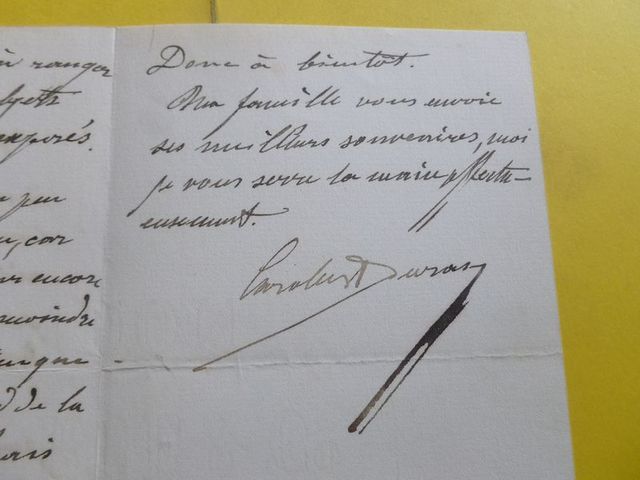 à ranger
objets
exposés.
par
, car
encore
moindre
que
de la
Donc à bientôt.
Ma famille vous envoie
ses meilleurs souvenirs, moi
je vous serre la main affectu-
eusement.
Carolus Duran